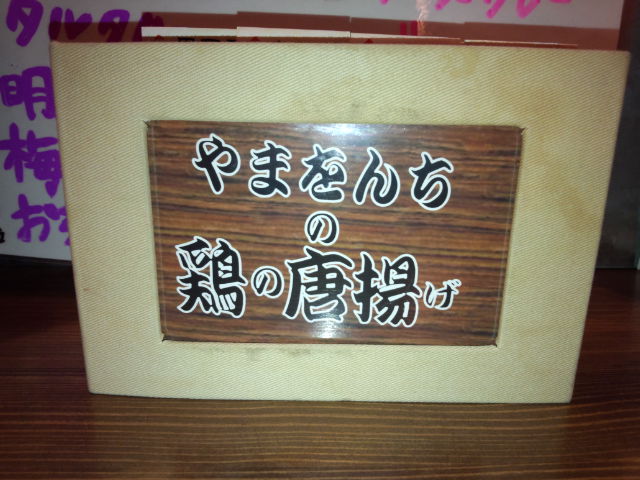 タルタル
明
梅
お
やまをんち
の
鶏の唐揚げ